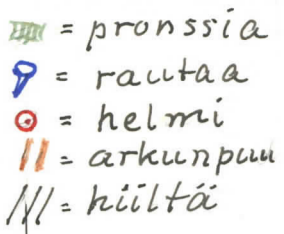 = pronssia
= rautaa
= helmi
= arkunpuu
= hiiltä